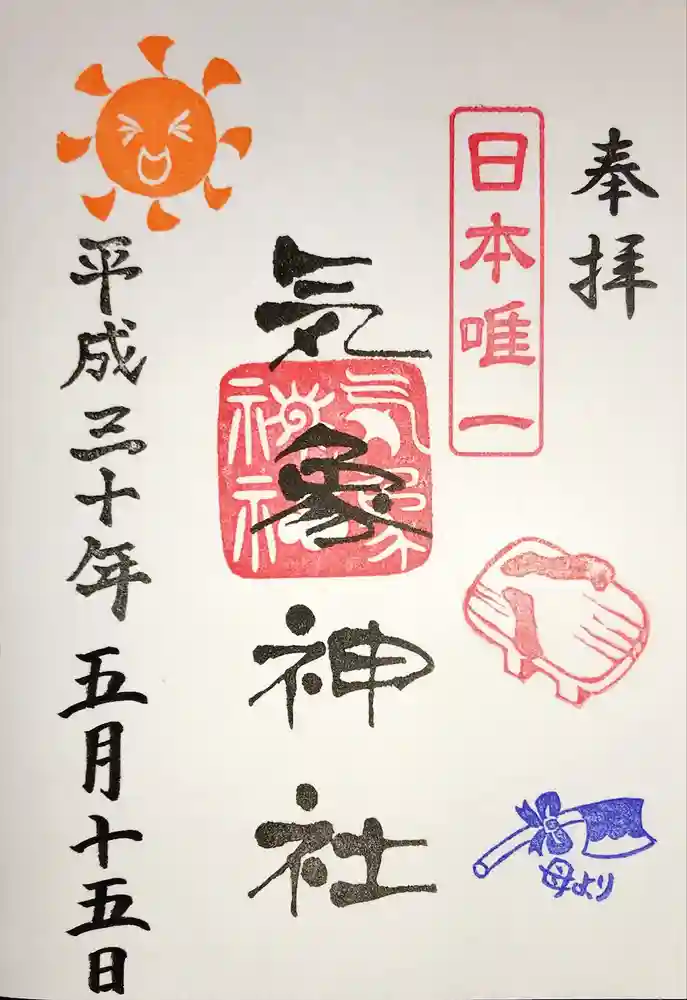 奉拝
日本唯一
母より
気象神社
気象神社
平成三十年 五月十五日